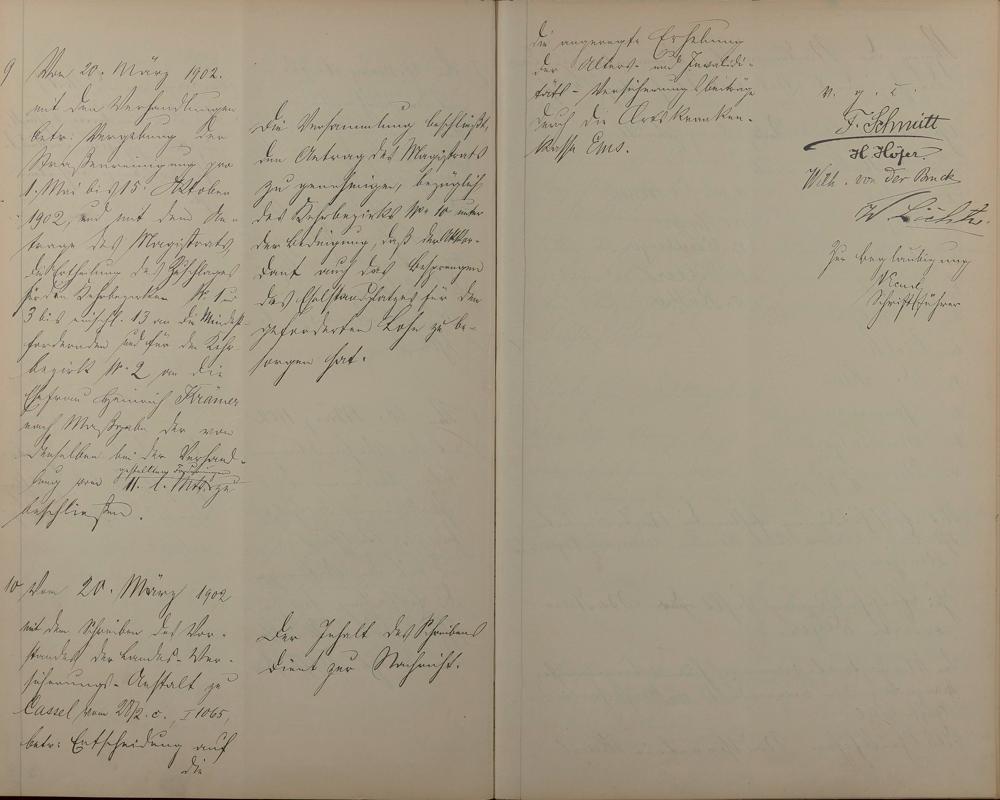 9 Vom 20. März 1902.
mit den Verhandlungen
betr: Vergebung der
Straßenreinigung pro
1. Mai bis 15. Oktober
1902, und mit dem An-
trage des Magistrats,
die Ertheilung des Zuschlages
für den Kehrbezirken № 1 u.
3 bis einschl. 13 an die Mindest-
fordernden und für den Kehr-
bezirk № 2 an die
Ehefrau Heinrich Krämer
nach Maßgabe der von
denselben bei der Verhand-
gestellten Forderungen
lung vom 11. l. Mts. zu
beschließen.
Die Versammlung beschließt,
den Antrag des Magistrats
zu genehmigen, bezüglich
des Kehrbezirks № 10 unter
der Bedingung, daß der Akkor-
dant auch das Besprengen
des Eselstandplatzes für den
geforderten Lohn zu be-
sorgen hat.
10 Vom 20. März 1902
mit dem Schreiben des Vor-
standes der Landes-Ver-
sicherungs-Anstalt zu
Cassel vom 28/2. c., I 1065,
betr: Entscheidung auf
die
Der Inhalt des Schreibens
dient zur Nachricht.
die angeregte Erhebung
der Alters- und Invalidi-
täts-Versicherungsbeiträge
durch die Ortskranken-
kasse Ems.
v. g. u.
F. Schmitt
H. Höfer.
Wilh. von der Bruck
Zur Beglaubigung
Schriftführer